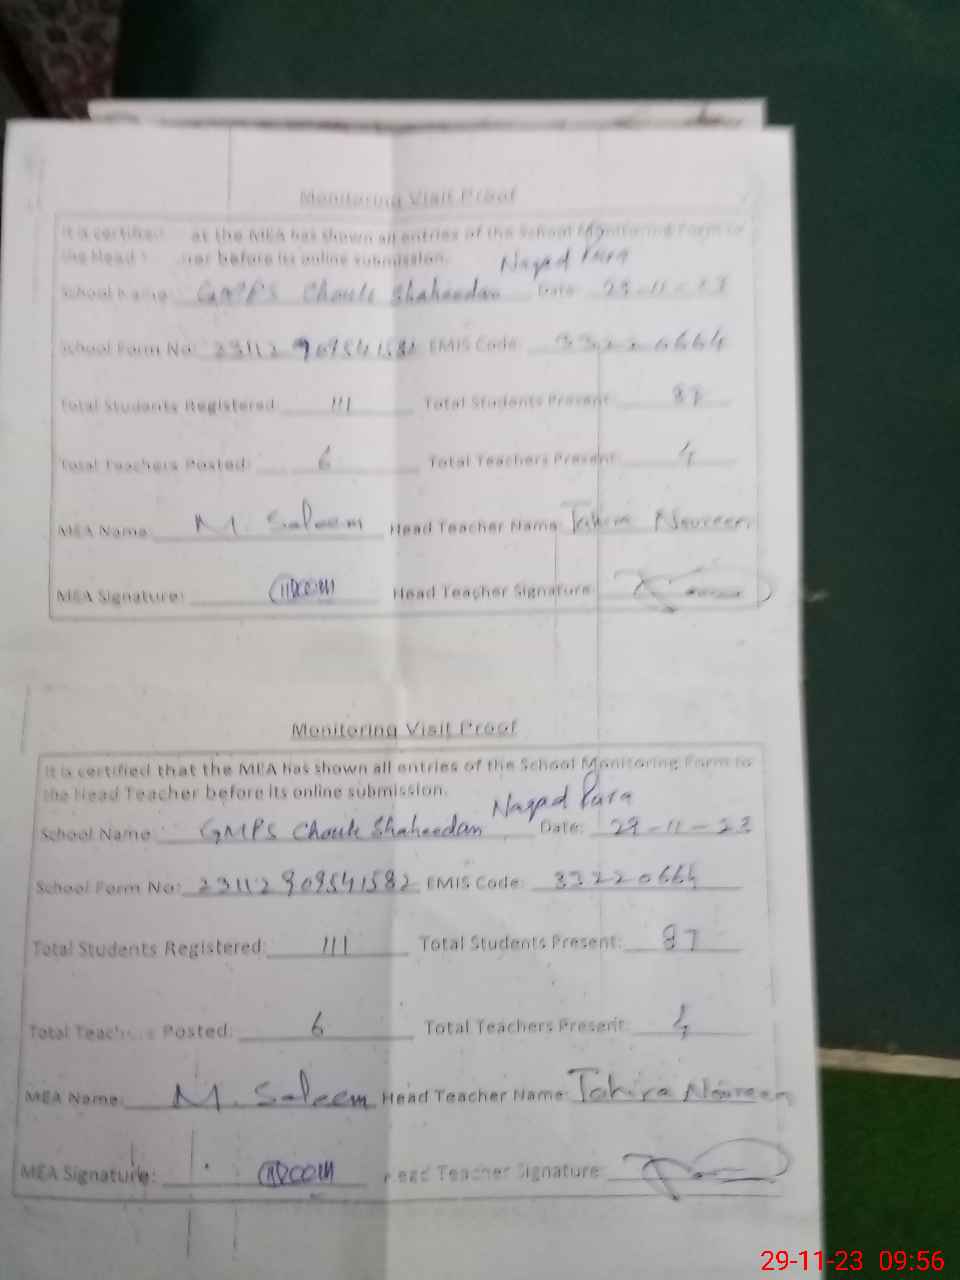 Monitoring Visit Proof
It is certified at the MEA has shown all entries of the School Monitoring Form to
the Head her before its online submission.
Naqad Pura
School Name: GMPS Chouk Shaheedan Date: 29-11-23
School Form No: 23112909541582 EMIS Code: 33220664
Total Students Registered 111 Total Students Present: 87
Total Teachers Posted: 6 Total Teachers Present: 4
MEA Name: M. Saleem Head Teacher Name Tahira Noureen
MEA Signature: Head Teacher Signature:
Monitoring Visit Proof
It is certified that the MEA has shown all entries of the School Monitoring Form to
the Head Teacher before its online submission.
Naqad Pura
School Name: GMPS Chouk Shaheedan Date: 29-11-23
School Form No: 23112909541582 EMIS Code: 33220664
Total Students Registered: 111 Total Students Present: 87
Total Teachers Posted: 6 Total Teachers Present: 4
MEA Name: M. Saleem Head Teacher Name Tahira Noureen
MEA Signature: Head Teacher Signature:
29-11-23 09:56